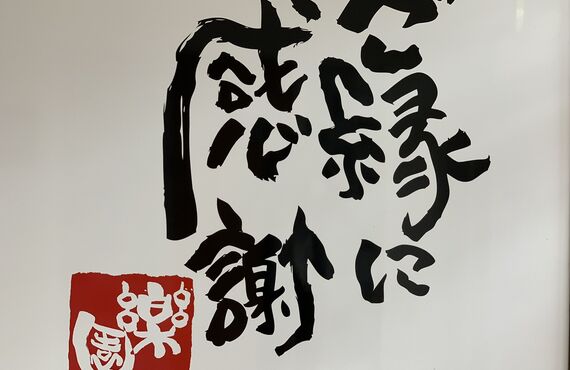 ご縁に
感謝
楽園